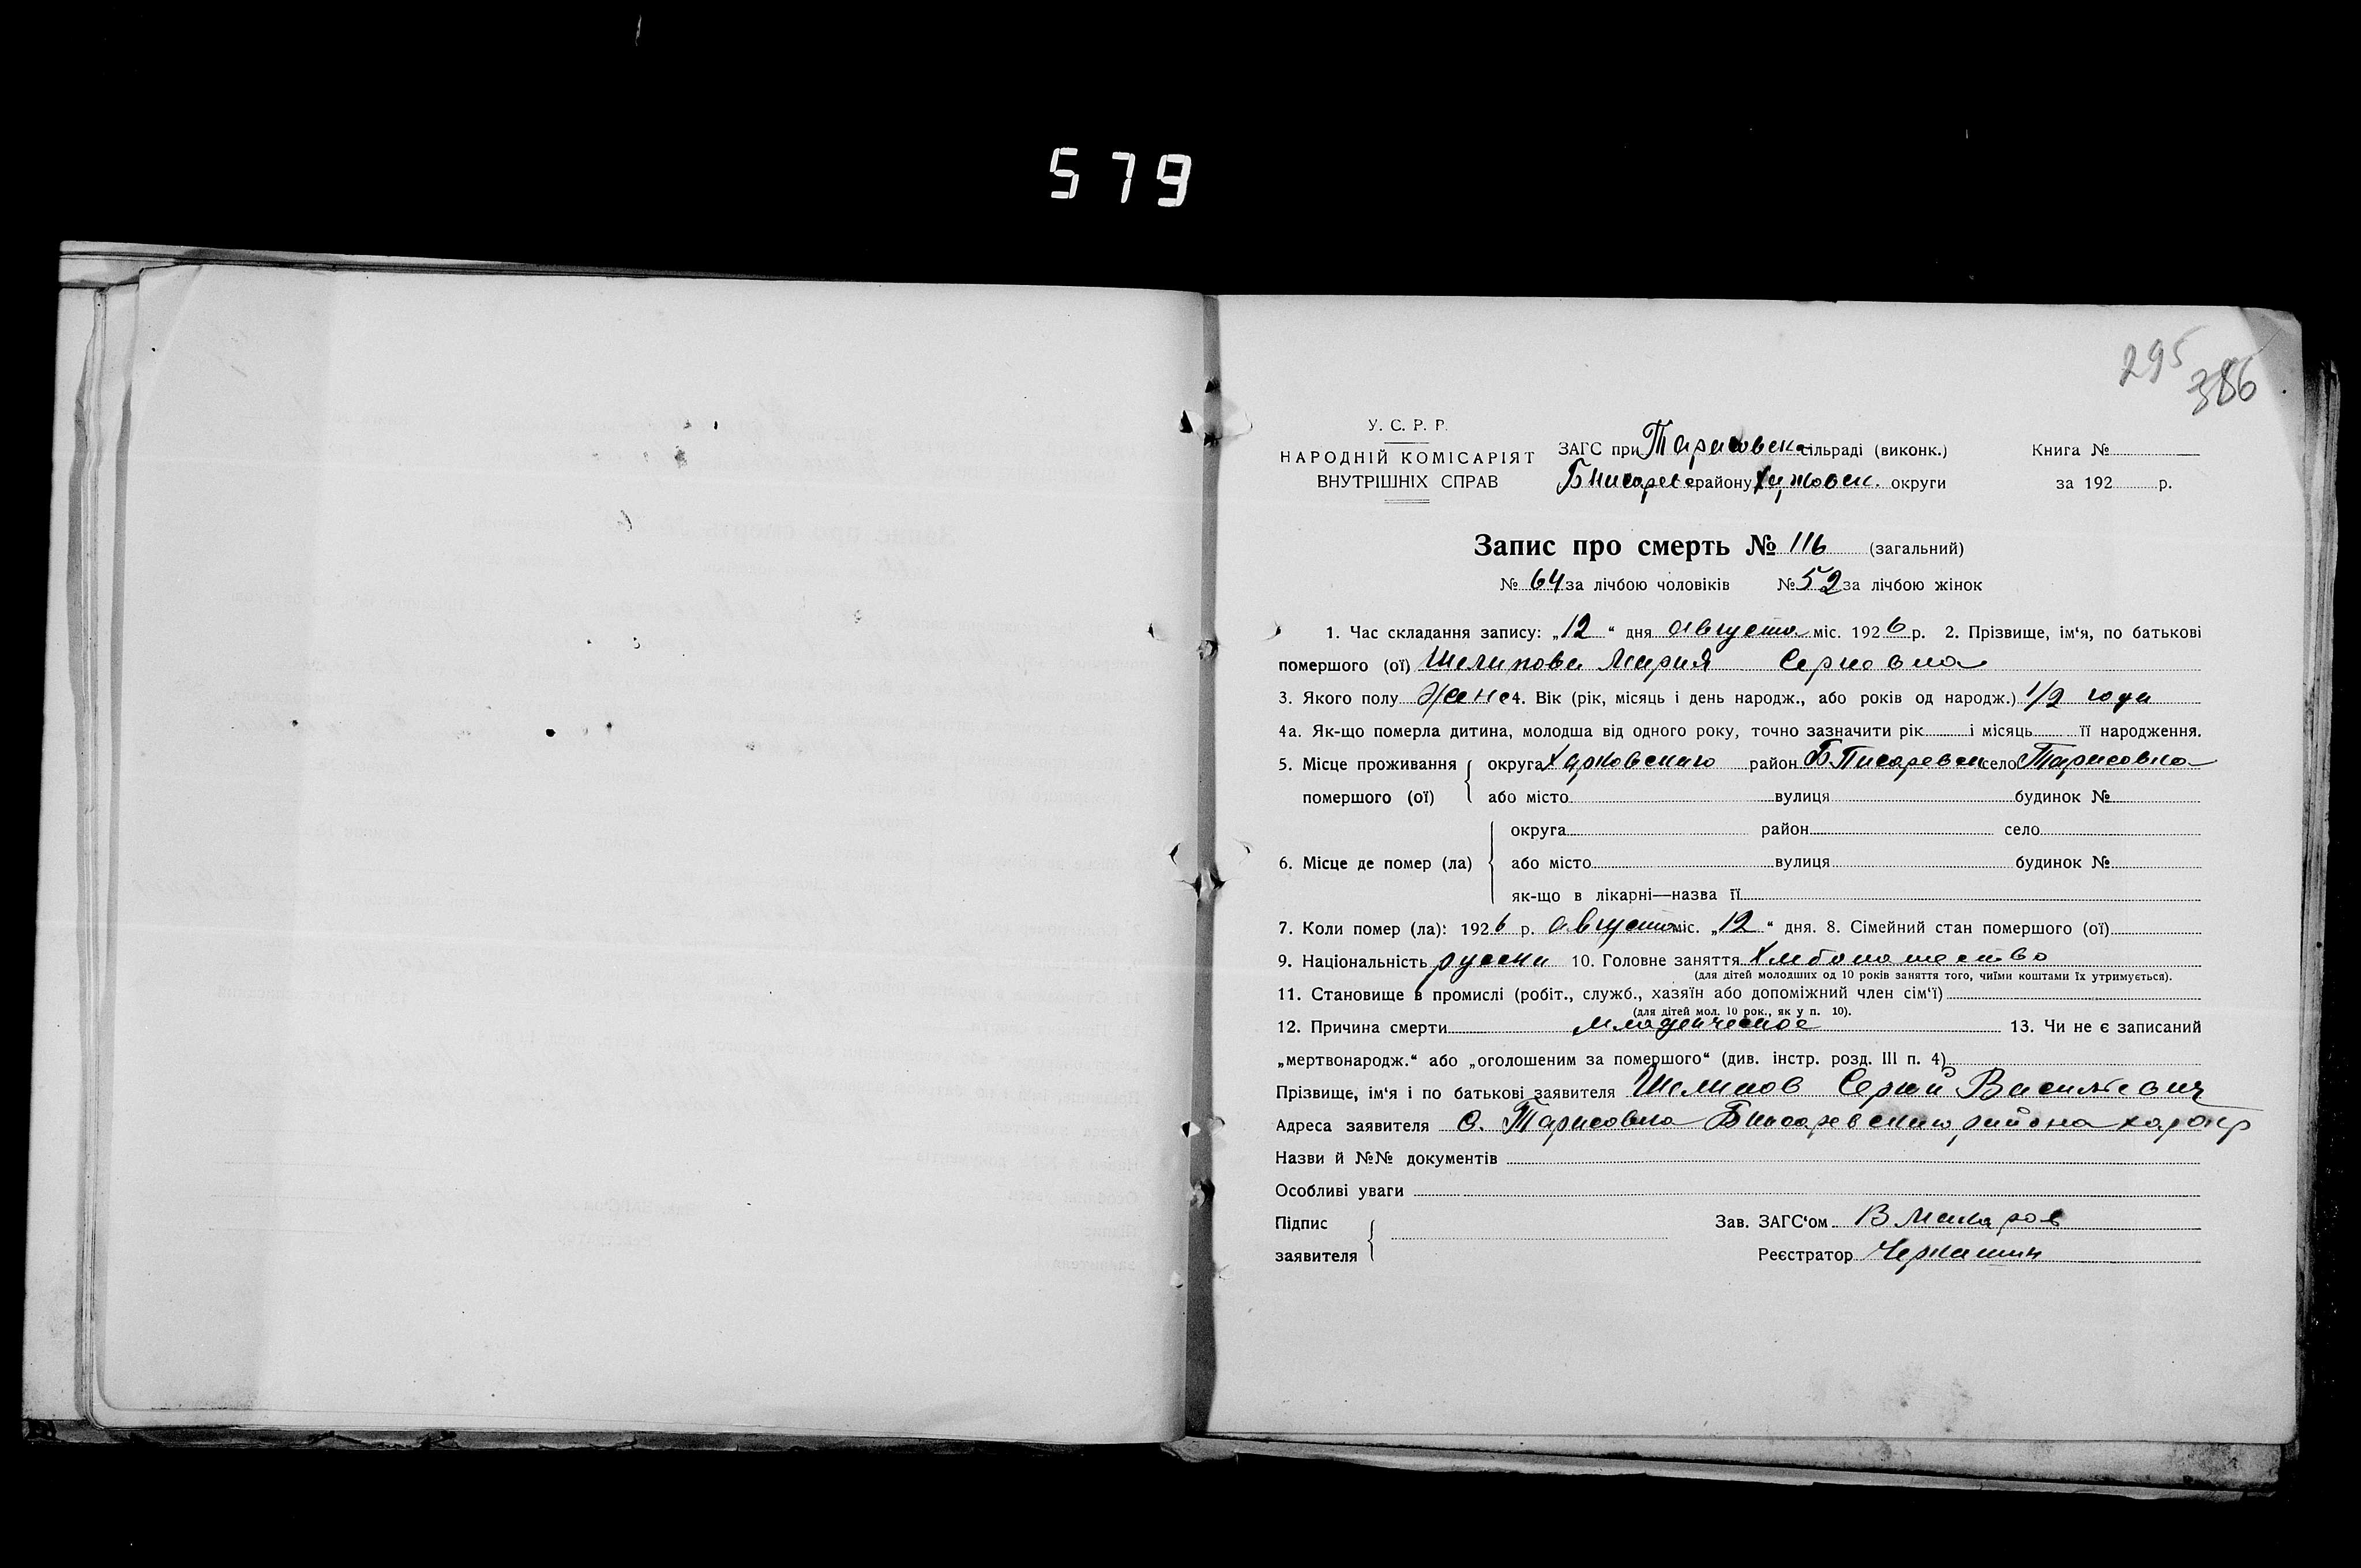 579
295
386
У. С. Р. Р.
НАРОДНІЙ КОМІСАРІЯТ
ВНУТРІШНІХ СПРАВ
ЗАГС при Тарасовск сільраді (виконк.)
БПисарев району Харковск. округи
Книга №
за 192 р.
Запис про смерть № 116 (загальний)
№ 64 за лічбою чоловіків № 52 за лічбою жінок
1. Час складання запису: „12“ дня августа міс. 1926 р. 2. Прізвище, ім'я, по батькові
помершого (ої) Шелипова Мария Сергеевна
3. Якого полу Женс 4. Вік (рік, місяць і день народж., або років од народж.) 1/2 года
4а. Як-що померла дитина, молодша від одного року, точно зазначити рік і місяць її народження.
5. Місце проживання округа Харковскаю район Б.Писаревск село Тарасовка
помершого (ої) або місто вулиця будинок №
округа район село
6. Місце де помер (ла) або місто вулиця будинок №
як-що в лікарні—назва її
7. Коли помер (ла): 1926 р. августа міс. „12“ дня. 8. Сімейний стан помершого (ої)
9. Національність русски 10. Головне заняття Хлебопашество
(для дітей молодших од 10 років заняття того, чиїми коштами їх утримується).
11. Становище в промислі (робіт., служб., хазяїн або допоміжний член сім'ї)
(для дітей мол. 10 рок., як у п. 10).
12. Причина смерти младенческое 13. Чи не є записаний
„мертвонародж.“ або „оголошеним за помершого“ (див. інстр. розд. III п. 4)
Прізвище, ім'я і по батькові заявителя Шелипов Сергей Васильевич
Адреса заявителя С. Тарасовка БПисаревскаю района хар окр
Назви й №№ документів
Особливі уваги
Підпис
заявителя
Зав. ЗАГС'ом В Макаров
Реєстратор Черкашин